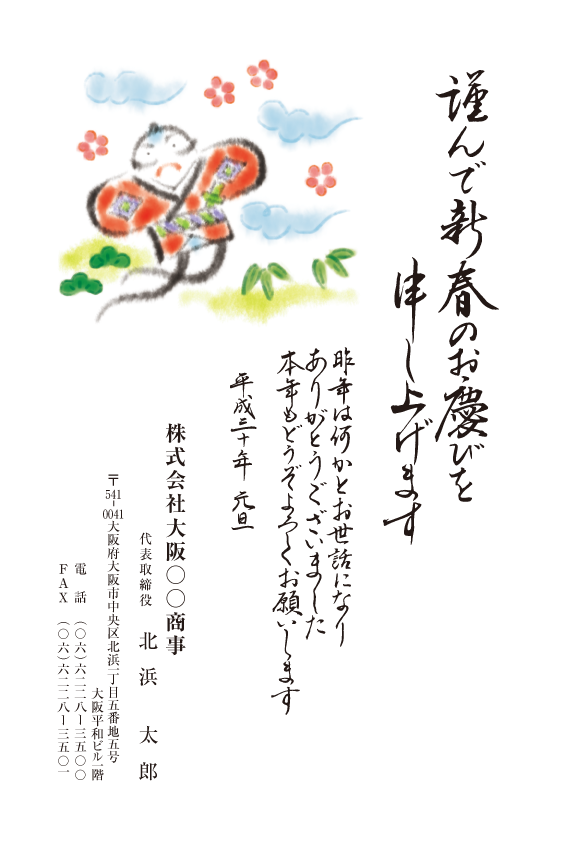 謹んで新春のお慶びを
申し上げます
昨年は何かとお世話になり
ありがとうございました
本年もどうぞよろしくお願いします
平成三十年 元旦
株式会社大阪〇〇商事
代表取締役 北浜 太郎
〒541-0041大阪府大阪市中央区北浜一丁目五番地五号
大阪平和ビル一階
電話 (〇六)六二二八ー三五〇〇
FAX (〇六)六二二八ー三五〇一